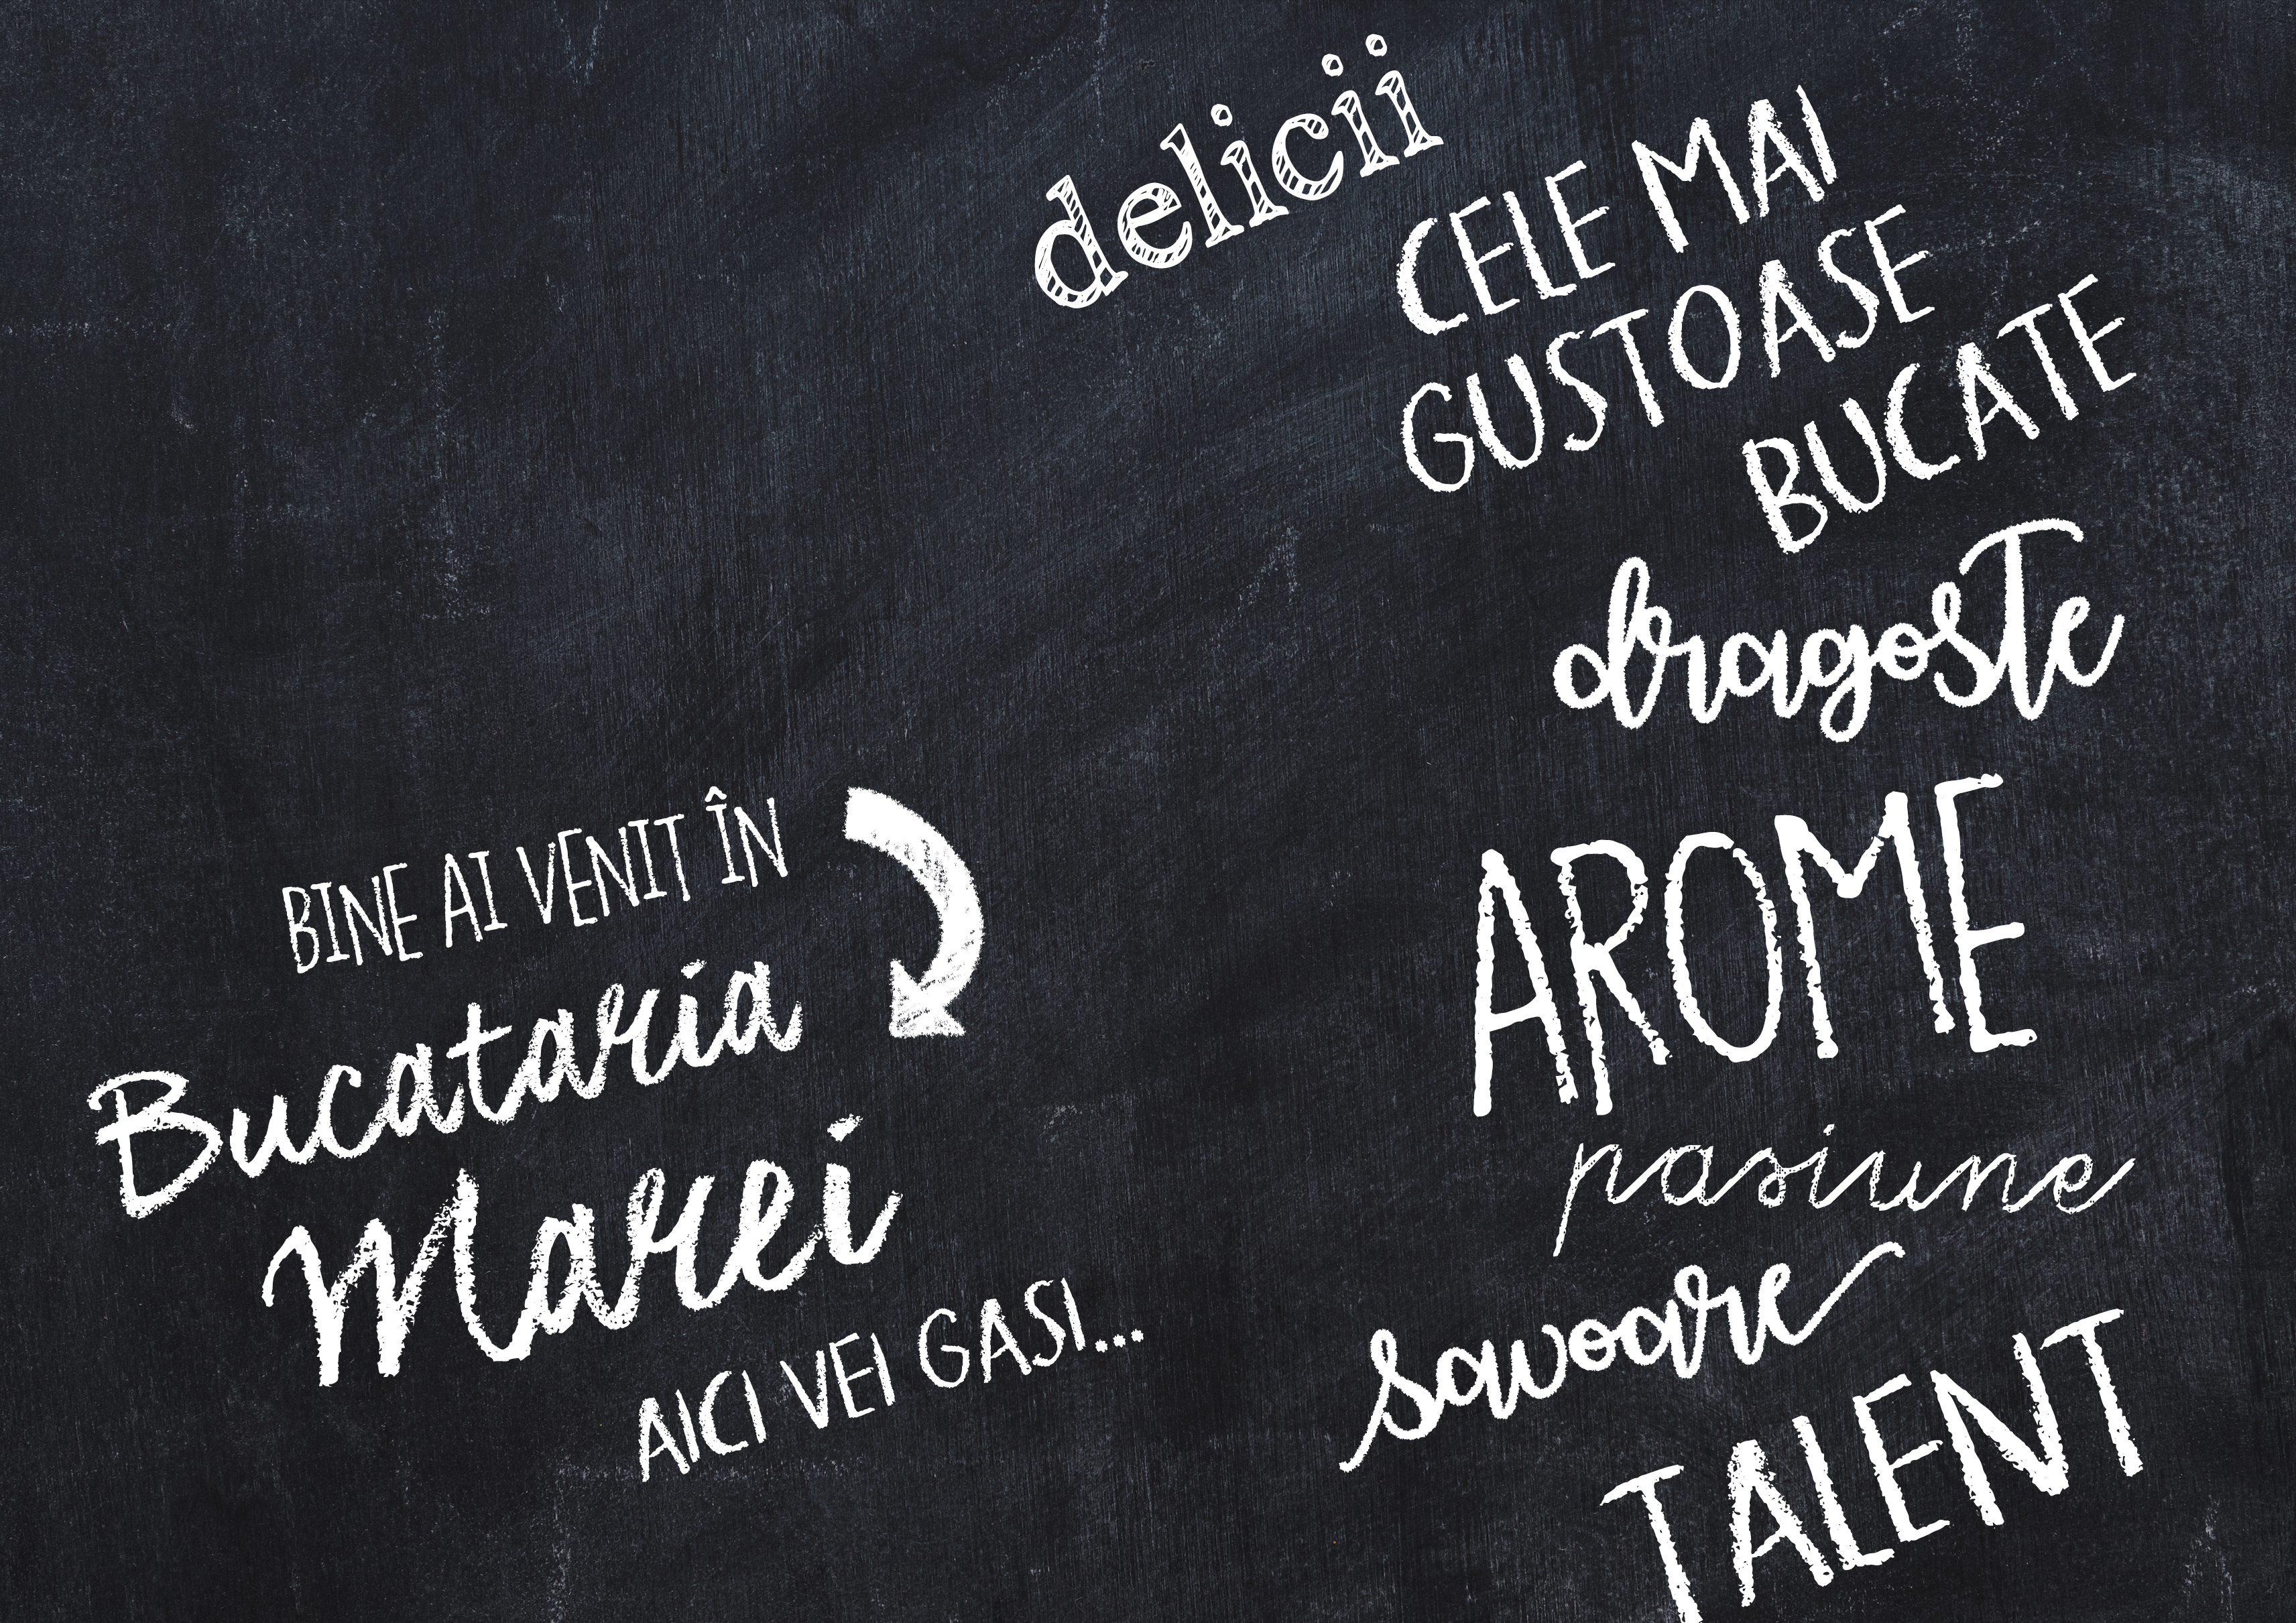 BINE AI VENIT ÎN
Bucataria
Marei
AICI VEI GASI...
delicii
CELE MAI
GUSTOASE
BUCATE
dragoste
AROME
pasiune
savoare
TALENT